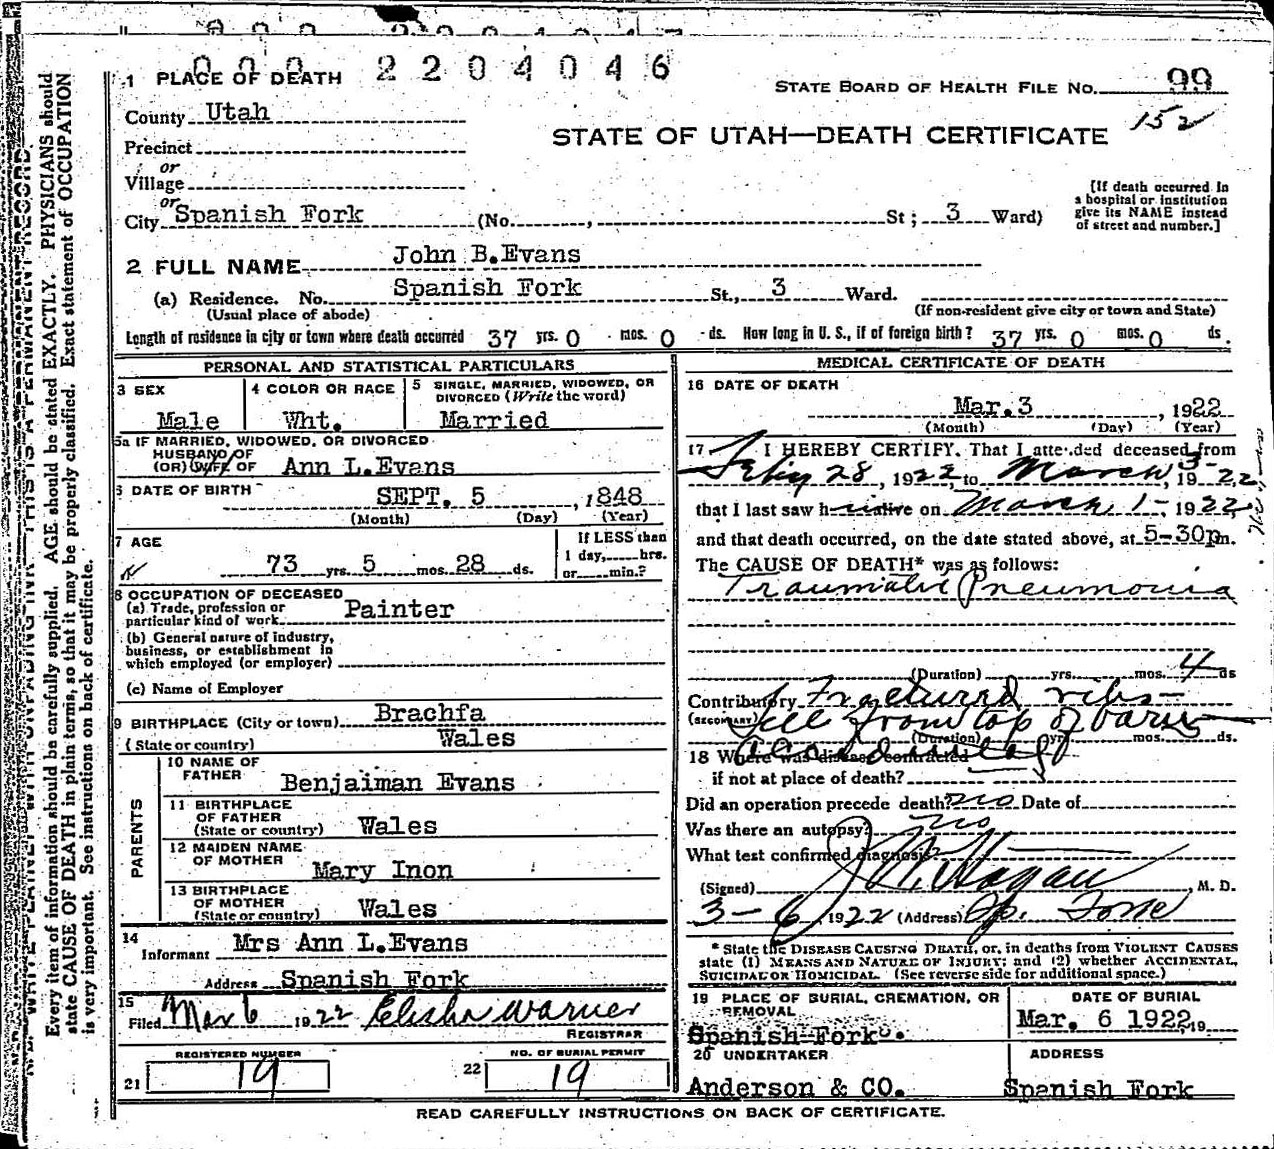 0 0 0 2 2 0 4 0 4 6
1 PLACE OF DEATH
STATE BOARD OF HEALTH FILE NO. 99
152
County Utah
STATE OF UTAH—DEATH CERTIFICATE
Precinct
or
Village
or
City Spanish Fork (No. , St; 3 Ward)
[If death occurred in a hospital or institution give its NAME instead of street and number.]
2 FULL NAME John B.Evans
(a) Residence. No. Spanish Fork St., 3 Ward.
(Usual place of abode) (If non-resident give city or town and State)
Length of residence in city or town where death occurred 37 yrs. 0 mos. 0 ds. How long in U. S., if of foreign birth? 37 yrs. 0 mos. 0 ds.
PERSONAL AND STATISTICAL PARTICULARS
3 SEX
Male
4 COLOR OR RACE
Wht.
5 SINGLE, MARRIED, WIDOWED, OR DIVORCED (Write the word)
Married
5a IF MARRIED, WIDOWED, OR DIVORCED
HUSBAND OF
(OR) WIFE OF Ann L.Evans
6 DATE OF BIRTH SEPT. 5 , 1848
(Month) (Day) (Year)
7 AGE
73 yrs. 5 mos. 28 ds.
If LESS than
1 day, hrs.
or min.?
8 OCCUPATION OF DECEASED
(a) Trade, profession or particular kind of work Painter
(b) General nature of industry,
business, or establishment in
which employed (or employer)
(c) Name of Employer
9 BIRTHPLACE (City or town) Brachfa
(State or country) Wales
PARENTS
10 NAME OF FATHER Benjaiman Evans
11 BIRTHPLACE OF FATHER
(State or country) Wales
12 MAIDEN NAME OF MOTHER Mary Inon
13 BIRTHPLACE OF MOTHER
(State or country) Wales
14
Informant Mrs Ann L.Evans
Address Spanish Fork
15
Filed Mar 6 1922 Elisha Warner
REGISTRAR
REGISTERED NUMBER
21 19
NO. OF BURIAL PERMIT
22 19
MEDICAL CERTIFICATE OF DEATH
16 DATE OF DEATH
Mar.3 , 1922
(Month) (Day) (Year)
17 I HEREBY CERTIFY. That I attended deceased from
Feby 28, 1922, to March 3-, 1922
that I last saw h alive on March 1-, 1922,
and that death occurred, on the date stated above, at 5-30pm.
The CAUSE OF DEATH* was as follows:
Traumatic Pneumonia
(Duration) yrs. mos. 4 ds
Contributory Fractured ribs—
(SECONDARY) Fell from top of barn
(Duration) yrs. mos. ds.
Accidental
18 Where was disease contracted
if not at place of death?
Did an operation precede death? no Date of
Was there an autopsy? no
What test confirmed diagnosis?
(Signed) J. W. Hagan , M. D.
3-6, 1922 (Address) Sp. Fork
* State the DISEASE CAUSING DEATH, or, in deaths from VIOLENT CAUSES
state (1) MEANS AND NATURE OF INJURY; and (2) whether ACCIDENTAL,
SUICIDAL OR HOMICIDAL. (See reverse side for additional space.)
19 PLACE OF BURIAL, CREMATION, OR REMOVAL
Spanish Fork
DATE OF BURIAL
Mar. 6 1922, 19
20 UNDERTAKER
Anderson & CO.
ADDRESS
Spanish Fork
READ CAREFULLY INSTRUCTIONS ON BACK OF CERTIFICATE.
Every item of information should be carefully supplied. AGE should be stated EXACTLY. PHYSICIANS should
state CAUSE OF DEATH in plain terms, so that it may be properly classified. Exact statement of OCCUPATION
is very important. See instructions on back of certificate.